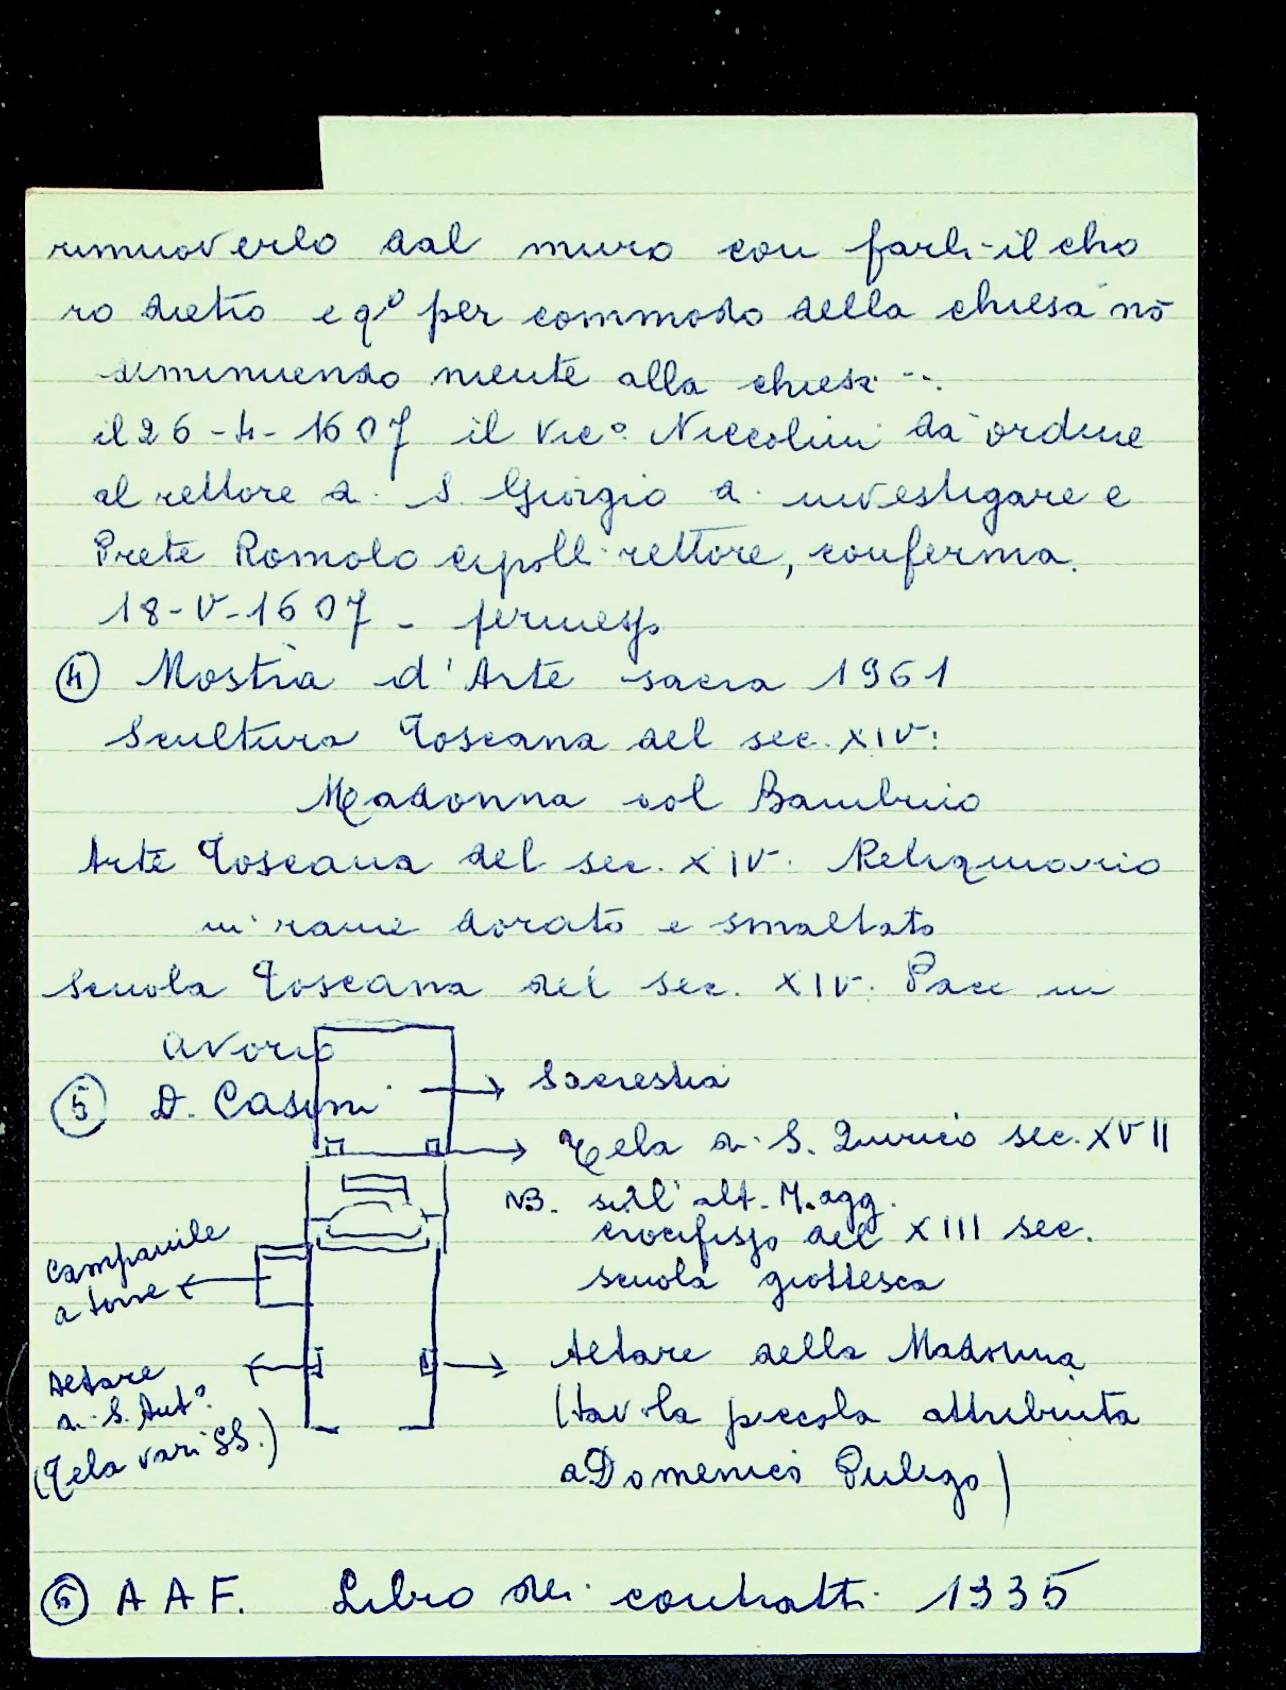 rimuoverlo dal muro con farli il cho
ro dietro e qº per commodo della chiesa nō
diminuendo niente alla chiesa ...
il 26-4-1607 il Vicº Niccolini dà ordine
al rettore di S. Giorgio di investigare e
Prete Romolo Cipolli rettore, conferma.
18-V-1607 - permesso
④ Mostra d'Arte sacra 1961
Scultura Toscana del sec. XIV:
Madonna col Bambino
Arte Toscana del sec. XIV. Reliquiario
in rame dorato e smaltato
Scuola Toscana del sec. XIV. Pace in
avorio
⑤ D. Casini
Sacrestia
Tela di S. Quirico sec. XVII
NB. sull'alt. Magg.
crocifisso del XIII sec.
scuola giottesca
Campanile
a torre
Altare
di S. Antº
(Tela vari SS.)
Altare della Madonna
(tavola piccola attribuita
a Domenico Puligo)
⑥ A A F. Libro dei contratti 1335